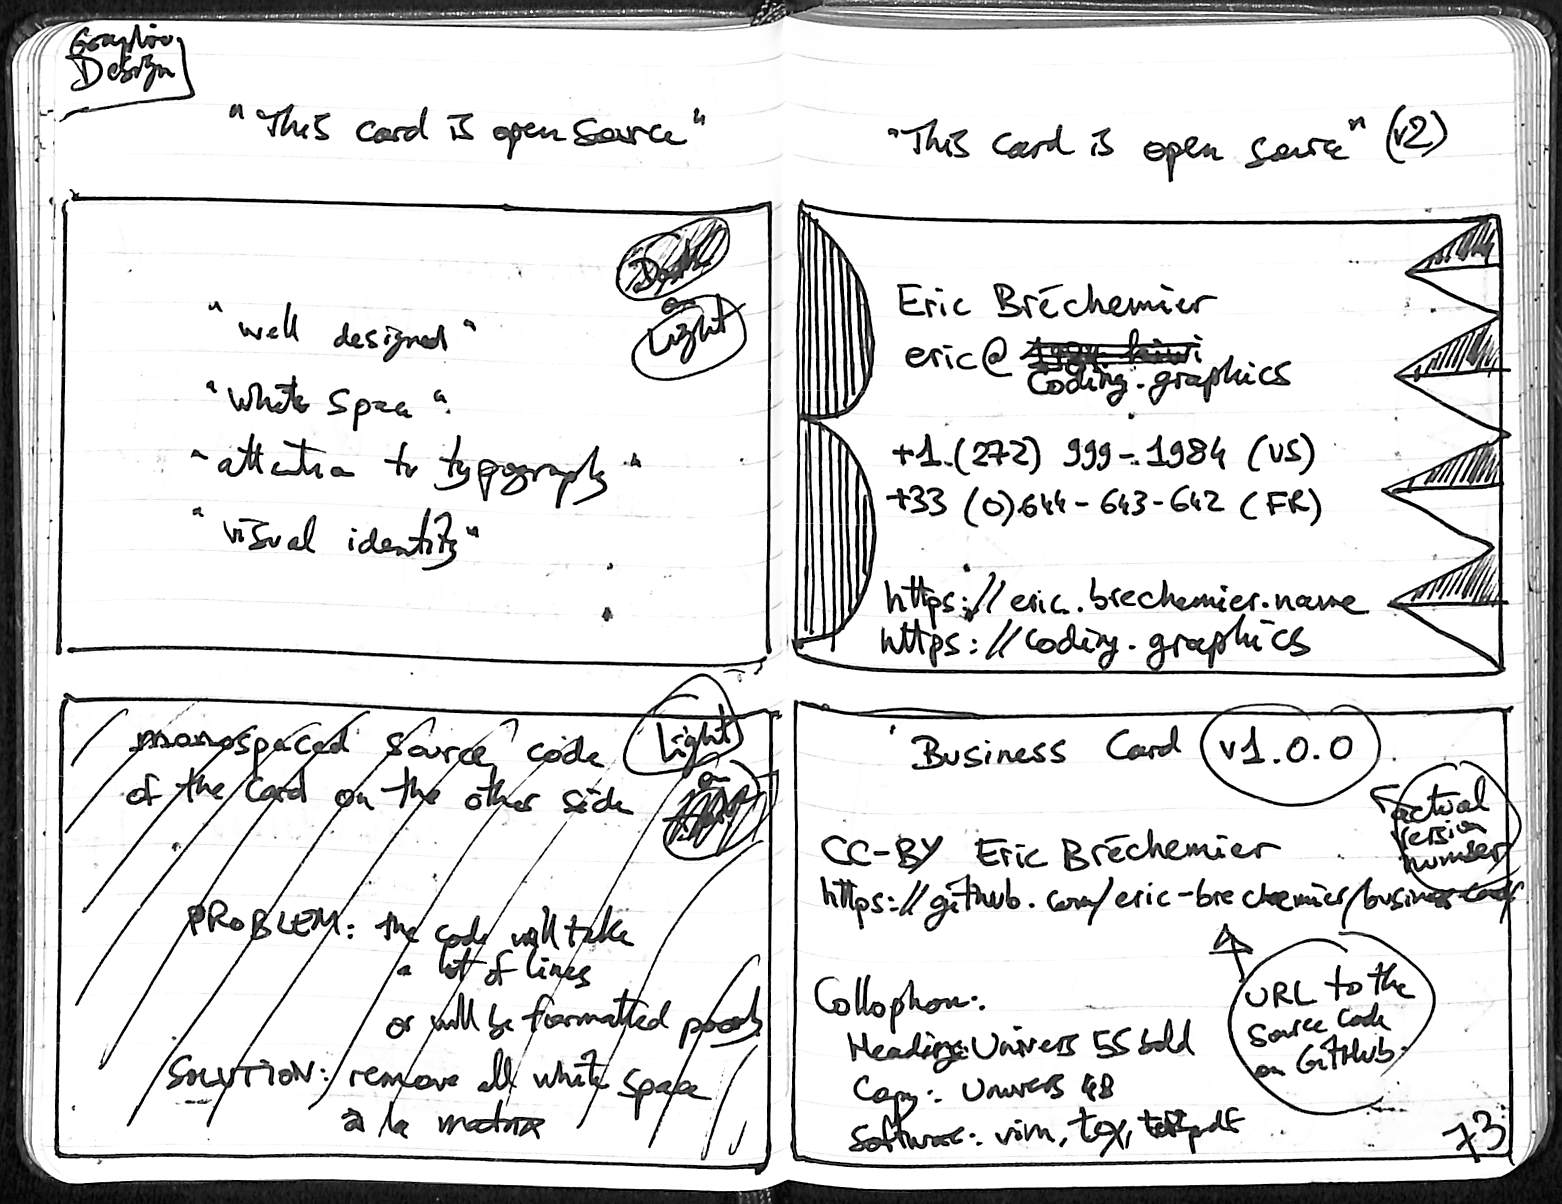 Graphic
Design
"This card is open source"
Dark
on
Light
"well designed"
"white space"
"attention to typography"
"visual identity"
Light
on
monospaced source code
of the card on the other side
PROBLEM: the code will take
a lot of lines
or will be formatted poorly
SOLUTION: remove all white space
à la matrix
"This card is open source" (v2)
Eric Bréchemier
eric@
coding.graphics
+1.(272) 999-1984 (US)
+33 (0)644-643-642 (FR)
https://eric.brechemier.name
https://coding.graphics
Business Card v1.0.0
actual
version
number
CC-BY Eric Bréchemier
https://github.com/eric-brechemier/business-cards
URL to the
source code
on GitHub.
Collophon:
Heading: Univers 55 bold
Copy: Univers 48
Software: vim, tex,
73